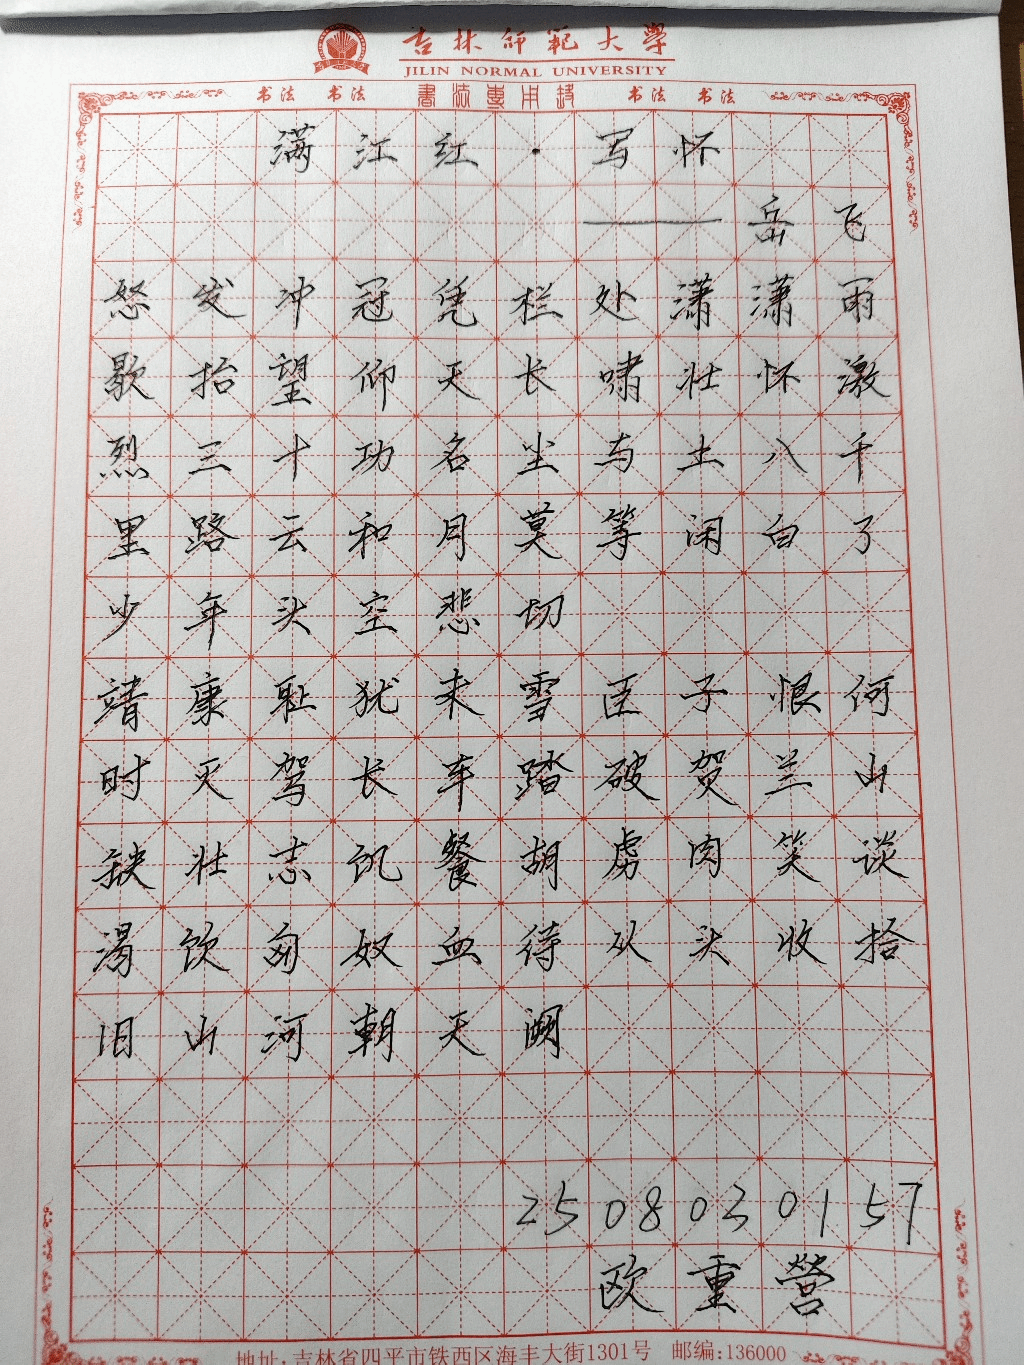 吉林师范大学
JILIN NORMAL UNIVERSITY
书法 书法 書法專用紙 书法 书法
满江红·写怀
——岳飞
怒发冲冠凭栏处潇潇雨
歇抬望仰天长啸壮怀激
烈三十功名尘与土八千
里路云和月莫等闲白了
少年头空悲切
靖康耻犹未雪臣子恨何
时灭驾长车踏破贺兰山
缺壮志饥餐胡虏肉笑谈
渴饮匈奴血待从头收拾
旧山河朝天阙
2508030157
欧重營
地址:吉林省四平市铁西区海丰大街1301号 邮编:136000